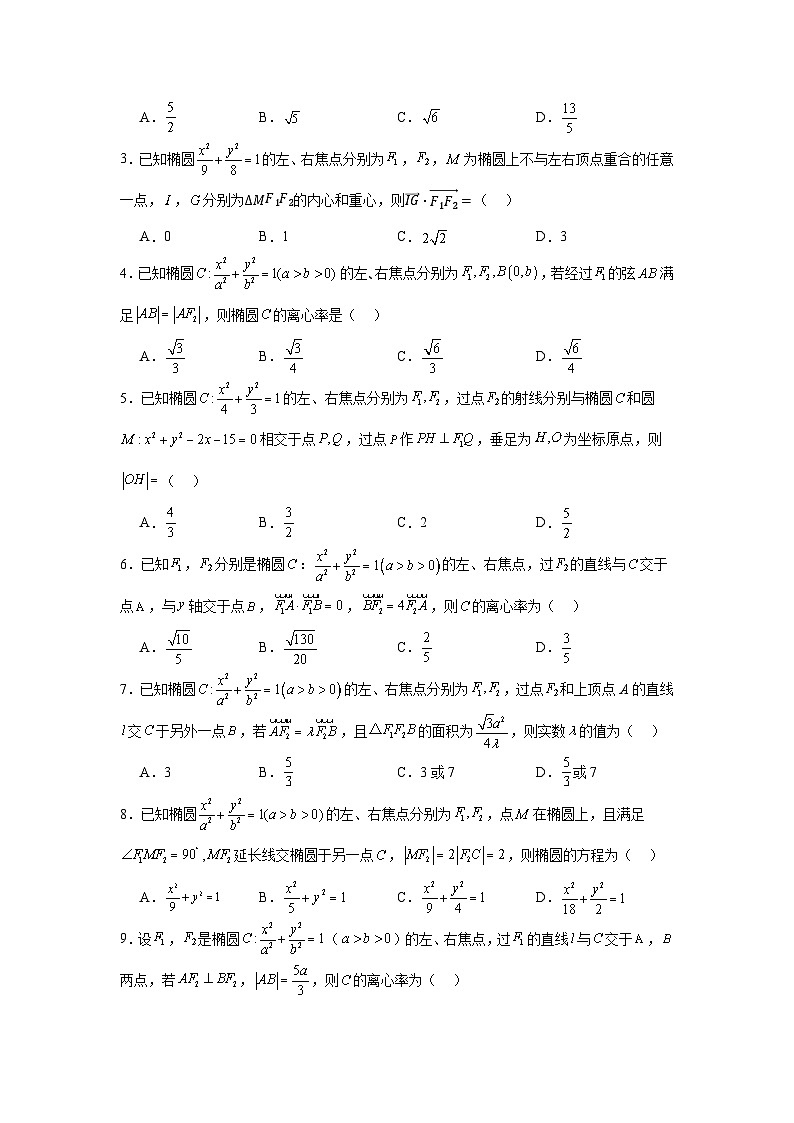 A．5/2 B．√5 C．√6 D．13/5
3．已知椭圆x²/9+y²/8=1的左、右焦点分别为F₁，F₂，M为椭圆上不与左右顶点重合的任意
一点，I，G分别为ΔMF₁F₂的内心和重心，则IG⃗·F₁F₂⃗=（ ）
A．0 B．1 C．2√2 D．3
4．已知椭圆C:x²/a²+y²/b²=1(a>b>0)的左、右焦点分别为F₁,F₂,B(0,b)，若经过F₁的弦AB满
足|AB|=|AF₂|，则椭圆C的离心率是（ ）
A．√3/3 B．√3/4 C．√6/3 D．√6/4
5．已知椭圆C:x²/4+y²/3=1的左、右焦点分别为F₁,F₂，过点F₂的射线分别与椭圆C和圆
M:x²+y²−2x−15=0相交于点P,Q，过点P作PH⊥F₁Q，垂足为H,O为坐标原点，则
|OH|=（ ）
A．4/3 B．3/2 C．2 D．5/2
6．已知F₁，F₂分别是椭圆C：x²/a²+y²/b²=1(a>b>0)的左、右焦点，过F₂的直线与C交于
点A，与y轴交于点B，F₁A·F₁B=0，BF₂=4F₂A，则C的离心率为（ ）
A．√10/5 B．√130/20 C．2/5 D．3/5
7．已知椭圆C:x²/a²+y²/b²=1(a>b>0)的左、右焦点分别为F₁,F₂，过点F₂和上顶点A的直线
l交C于另外一点B，若AF₂=λF₂B，且△F₁F₂B的面积为√3a²/4λ，则实数λ的值为（ ）
A．3 B．5/3 C．3或7 D．5/3或7
8．已知椭圆x²/a²+y²/b²=1(a>b>0)的左、右焦点分别为F₁,F₂，点M在椭圆上，且满足
∠F₁MF₂=90°,MF₂延长线交椭圆于另一点C，|MF₂|=2|F₂C|=2，则椭圆的方程为（ ）
A．x²/9+y²=1 B．x²/5+y²=1 C．x²/9+y²/4=1 D．x²/18+y²/2=1
9．设F₁，F₂是椭圆C:x²/a²+y²/b²=1（a>b>0）的左、右焦点，过F₁的直线l与C交于A，B
两点，若AF₂⊥BF₂，|AB|=5a/3，则C的离心率为（ ）